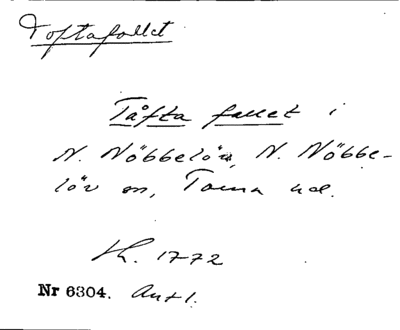 Toftafallet
Tåfta fallet i
N. Nöbbelöv, N. Nöbbe-
löv sn, Torna hd.
1772
Nr 6304. Avt 1.